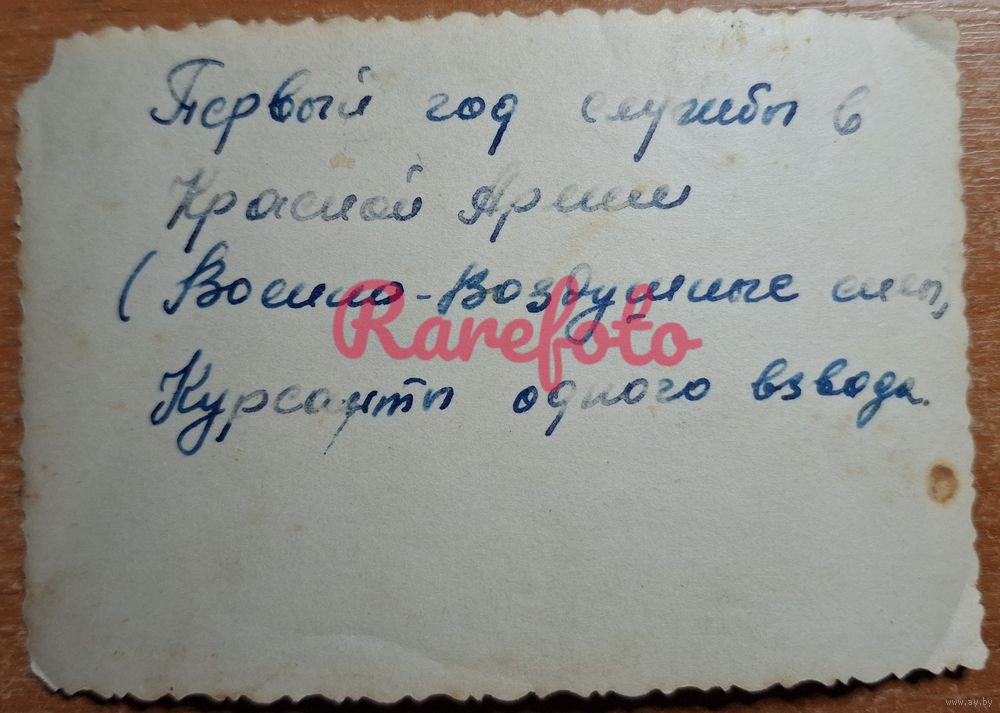 Первый год службы в
Красной Армии
(Военно-Воздушные силы,
Rarefoto
Курсанты одного взвода.
www.ay.by